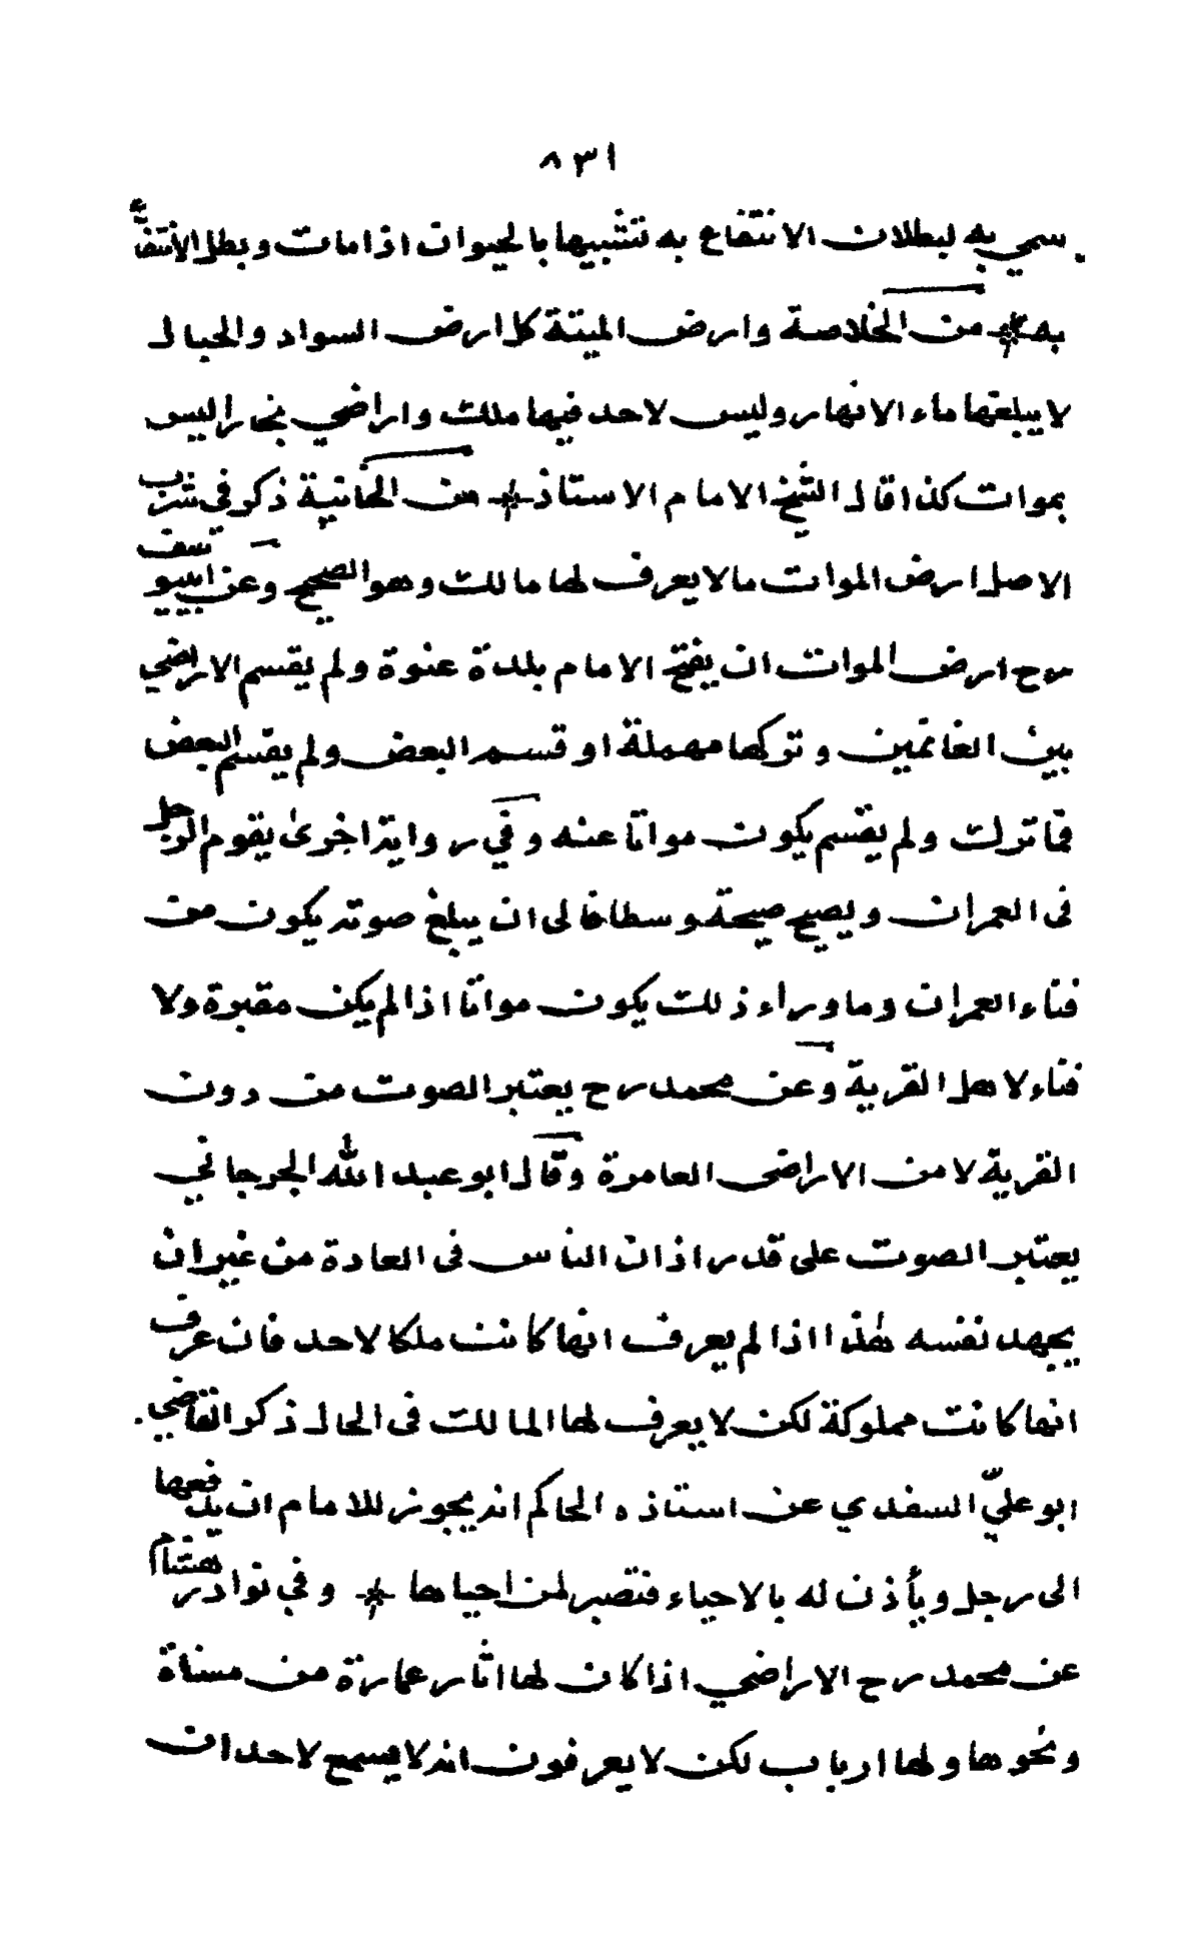 ٨٣١
سمي به لبطلان الانتفاع به تشبيها بالحيوان اذا مات وبطل الانتفاع
به * من الخلاصة وارض الميتة كل ارض السواد والجبال
لا يبلغها ماء الانهار وليس لاحد فيها ملك واراضي بخارا ليس
بموات كذا قال الشيخ الامام الاستاذ * من الخانية ذكر في شرب
الاصل ارض الموات ما لا يعرف لها مالك وهو الصحيح وعن ابي يوسف
رح ارض الموات ان يفتح الامام بلدة عنوة ولم يقسم الاراضي
بين الغانمين وتركها مهملة او قسم البعض ولم يقسم البعض
فما ترك ولم يقسم يكون مواتا عنه وفي رواية اخرى يقوم الرجل
فى العمران ويصيح صيحة وسطا فالى ان يبلغ صوته يكون من
فناء العمران وما وراء ذلك يكون مواتا اذا لم يكن مقبرة ولا
فناء لاهل القرية وعن محمد رح يعتبر الصوت من دون
القرية لا من الاراضى العامرة وقال ابو عبد الله الجرجاني
يعتبر الصوت على قدر اذان الناس فى العادة من غير ان
يجهد نفسه هذا اذا لم يعرف انها كانت ملكا لاحد فان عرف
انها كانت مملوكة لكن لا يعرف لها المالك فى الحال ذكر القاضي
ابو عليّ السغدي عن استاذه الحاكم انه يجوز للامام ان يدفعها
الى رجل ويأذن له بالاحياء فتصير لمن احياها * وفي نوادر هشام
عن محمد رح الاراضي اذا كان لها اثار عمارة من مسناة
ونحوها ولها ارباب لكن لا يعرفون انه لا يسع لاحد ان